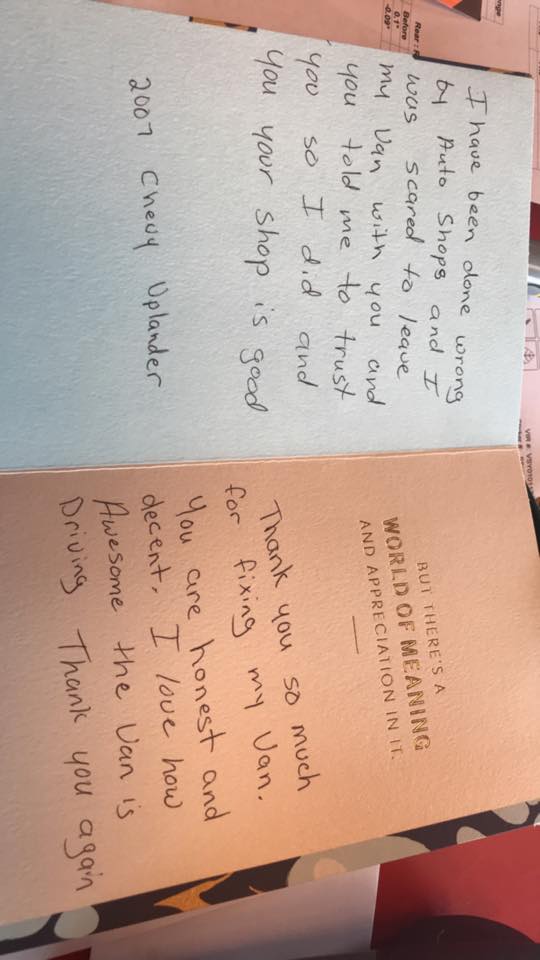 I have been done wrong
by Auto Shops and I
was scared to leave
my Van with you and
you told me to trust
you so I did and
you your shop is good
2007 Chevy Uplander
BUT THERE'S A
WORLD OF MEANING
AND APPRECIATION IN IT.
Thank you so much
for fixing my Van.
You are honest and
decent. I love how
Awesome the Van is
Driving Thank you again
Rear :
Before
0.1°
-0.09°